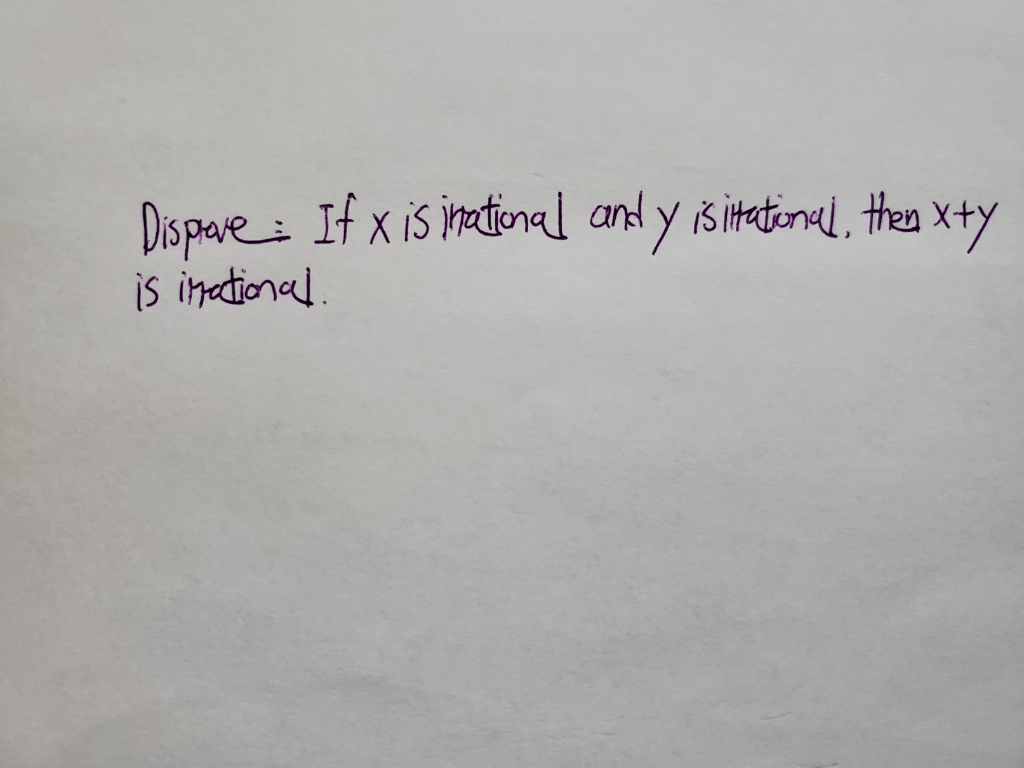 Disprove: If x is irrational and y is irrational, then x+y
is irrational.